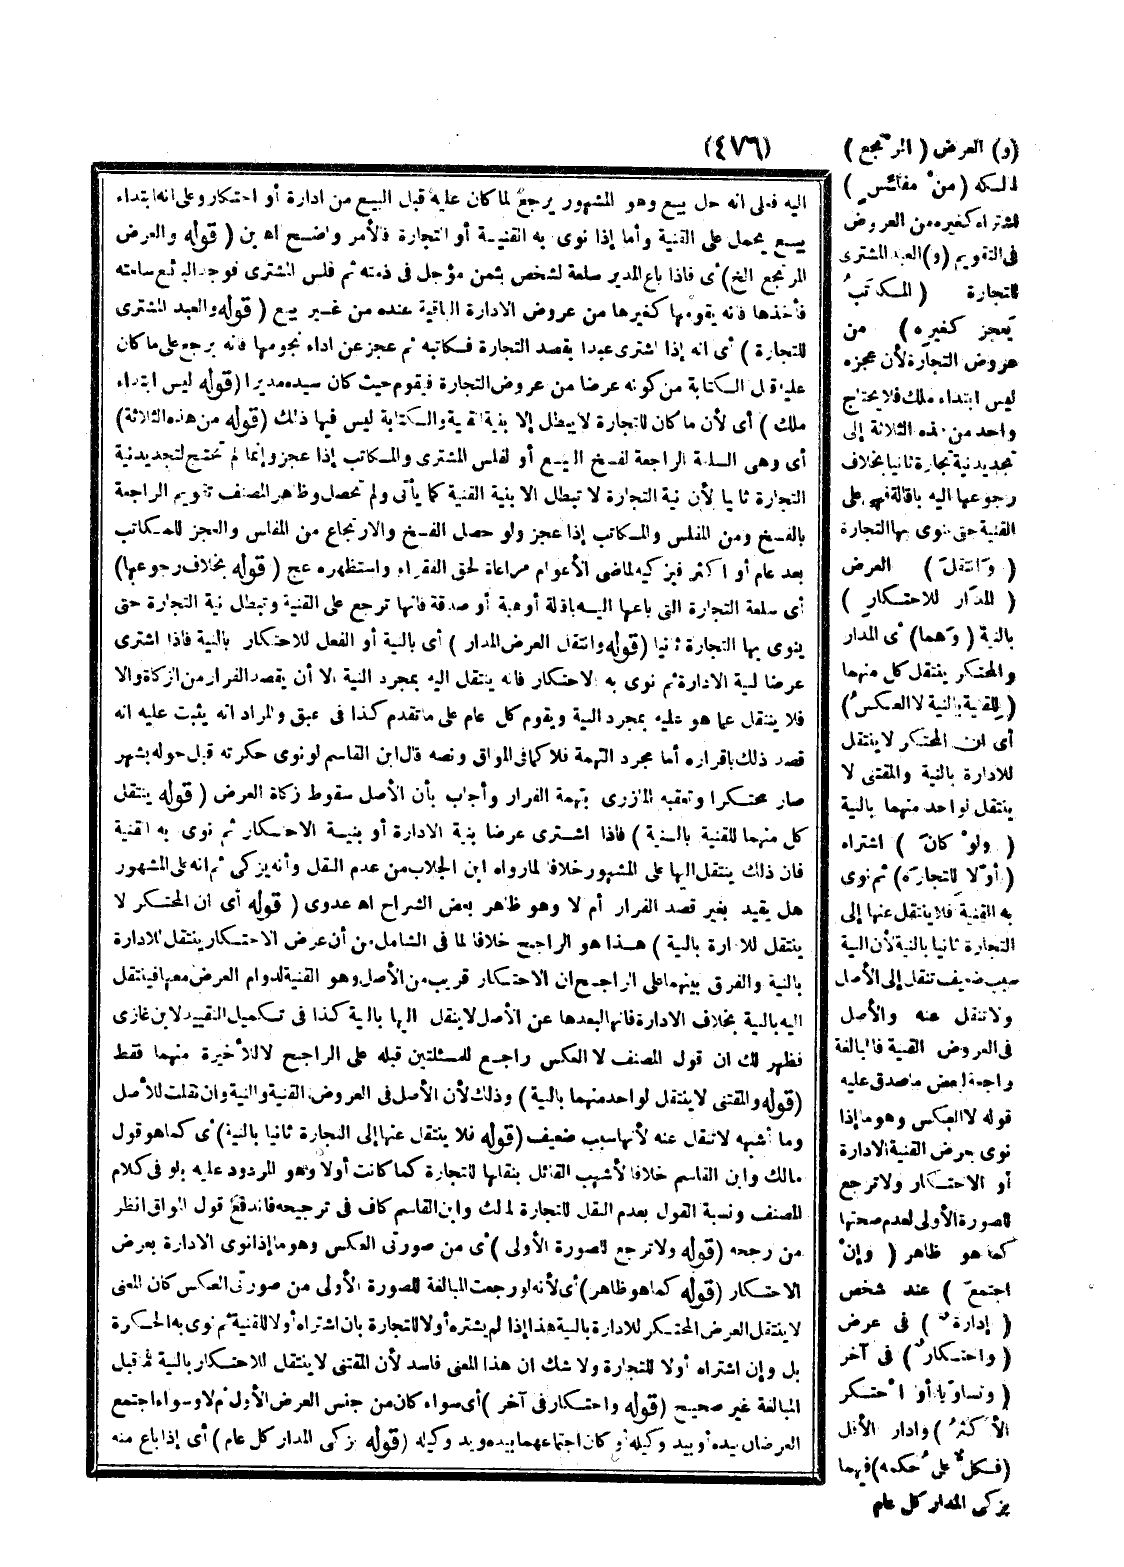 (٤٧٦)
(و) العرض (المرتجع)
لمالكه (من مفلس)
لمشتراه كغيره من العروض
فى التقويم (و) العبد المشترى
للتجارة (المكاتب
يعجز كغيره) من
عروض التجارة لأن عجزه
ليس ابتداء ملك فلا يحتاج
واحد من هذه الثلاثة إلى
تجديد نية تجارة ثانيا بخلاف
رجوعها اليه باقالة فهى على
القنية حتى ينوى بها التجارة
(وانتقل) العرض
(المدار للاحتكار)
بالنية (وهما) أى المدار
والمحتكر ينتقل كل منهما
(للقنية بالنية لا العكس)
أى ان المحتكر لا ينتقل
للادارة بالنية والمقتنى لا
ينتقل لواحد منهما بالنية
(ولو كان) اشتراه
(أولا للتجارة) ثم نوى
به القنية فلا ينتقل عنها إلى
التجارة ثانيا بالنية لأن النية
سبب ضعيف تنقل إلى الأصل
ولا تنقل عنه والأصل
فى العروض القنية فالمبالغة
راجعة لبعض ما صدق عليه
قوله لا العكس وهو ما إذا
نوى بعرض القنية الادارة
أو الاحتكار ولا ترجع
للصورة الأولى لعدم صحتها
كما هو ظاهر (وإن
اجتمع) عند شخص
(إدارة) فى عرض
(واحتكار) فى آخر
(وتساويا أو احتكر
الأكثر) وادار الأقل
(فكل على حكمه) فيهما
يزكى المدار كل عام
اليه فعلى انه حل بيع وهو المشهور يرجع لما كان عليه قبل البيع من ادارة أو احتكار وعلى انه ابتداء
بيع يحمل على القنية وأما إذا نوى به القنية أو التجارة فالأمر واضح اه بن (قوله والعرض
المرتجع الخ) أى فاذا باع المدير سلعة لشخص بثمن مؤجل فى ذمته ثم فلس المشترى فوجد البائع سلعته
فأخذها فانه يقومها كغيرها من عروض الادارة الباقية عنده من غير بيع (قوله والعبد المشترى
للتجارة) أى انه إذا اشترى عبدا بقصد التجارة فكاتبه ثم عجز عن اداء نجومها فانه يرجع على ما كان
عليه قبل الكتابة من كونه عرضا من عروض التجارة فيقوم حيث كان سيده مديرا (قوله ليس ابتداء
ملك) أى لأن ما كان للتجارة لا يبطل إلا بنية القنية والكتابة ليس فيها ذلك (قوله من هذه الثلاثة)
أى وهى السلعة الراجعة لفسخ البيع أو لفلس المشترى والمكاتب إذا عجز وإنما لم تحتج لتجديد نية
التجارة ثانيا لأن نية التجارة لا تبطل الا بنية القنية كما يأتى ولم تحصل وظاهر المصنف تقويم الراجعة
بالفسخ ومن المفلس والمكاتب إذا عجز ولو حصل الفسخ والارتجاع من المفلس والعجز للمكاتب
بعد عام أو اكثر فيزكيه لماضى الأعوام مراعاة لحق الفقراء واستظهره عج (قوله بخلاف رجوعها)
أى سلعة التجارة التى باعها اليه باقالة أو هبة أو صدقة فانها ترجع على القنية وتبطل نية التجارة حتى
ينوى بها التجارة ثانيا (قوله وانتقل العرض المدار) أى بالنية أو الفعل للاحتكار بالنية فاذا اشترى
عرضا لنية الادارة ثم نوى به الاحتكار فانه ينتقل اليه بمجرد النية الا أن يقصد الفرار من الزكاة والا
فلا ينتقل عما هو عليه بمجرد النية ويقوم كل عام على ما تقدم كذا فى عبق والمراد انه يثبت عليه انه
قصد ذلك باقراره أما مجرد التهمة فلا كما فى المواق ونصه قال ابن القاسم لو نوى حكرته قبل حوله بشهر
صار محتكرا وتعقبه المازرى بتهمة الفرار وأجاب بأن الأصل سقوط زكاة العرض (قوله ينتقل
كل منهما للقنية بالنية) فاذا اشترى عرضا بنية الادارة أو بنية الاحتكار ثم نوى به القنية
فان ذلك ينتقل الها على المشهور خلافا لما رواه ابن الجلاب من عدم النقل وأنه يزكى ثم انه على المشهور
هل يقيد بغير قصد الفرار أم لا وهو ظاهر بعض الشراح اه عدوى (قوله أى ان المحتكر لا
ينتقل للادارة بالنية) هذا هو الراجح خلافا لما فى الشامل من أن عرض الاحتكار ينتقل للادارة
بالنية والفرق بينهما على الراجح ان الاحتكار قريب من الأصل وهو القنية لدوام العرض معها فينتقل
اليه بالنية بخلاف الادارة فانها لبعدها عن الأصل لا ينتقل الها بالنية كذا فى تكميل التقييد لابن غازى
فظهر لك ان قول المصنف لا العكس راجع للمسئلتين قبله على الراجح لا للأخيرة منهما فقط
(قوله والمقتنى لا ينتقل لواحد منهما بالنية) وذلك لأن الأصل فى العروض القنية والنية وان نقلت للأصل
وما أشبهه لا تنقل عنه لأنها سبب ضعيف (قوله فلا ينتقل عنها إلى التجارة ثانيا بالنية) أى كما هو قول
مالك وابن القاسم خلافا لأشهب القائل بنقلها للتجارة كما كانت أولا وهو المردود عليه بلو فى كلام
المصنف ونسبة القول بعدم النقل للتجارة لمالك وابن القاسم كاف فى ترجيحه فاندفع قول المواق انظر
من رجحه (قوله ولا ترجع للصورة الأولى) أى من صورتى العكس وهو ما إذا نوى الادارة بعرض
الاحتكار (قوله كما هو ظاهر) أى لأنه لو رجعت المبالغة للصورة الأولى من صورتى العكس كان المعنى
لا ينتقل العرض المحتكر للادارة بالنية هذا إذا لم يشتره أولا للتجارة بان اشتراه أولا للقنية ثم نوى به الحكرة
بل وإن اشتراه أولا للتجارة ولا شك ان هذا المعنى فاسد لأن المقتنى لا ينتقل للاحتكار بالنية فما قبل
المبالغة غير صحيح (قوله واحتكار فى آخر) أى سواء كان من جنس العرض الأول أم لا وسواء اجتمع
العرضان بيده أو بيد وكيله أو كان اجتماعهما بيده ويد وكيله (قوله يزكى المدار كل عام) أى إذا باع منه